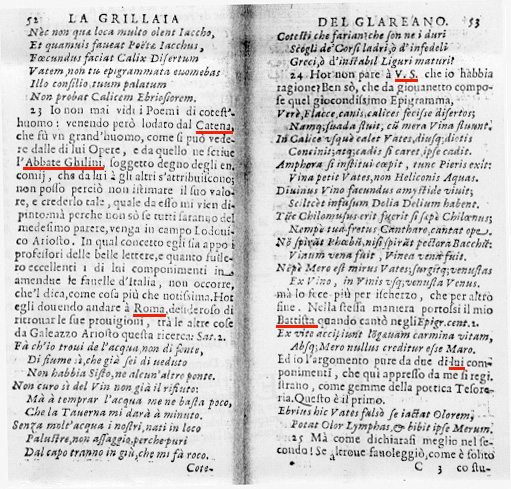 52 LA GRILLAIA
Nèc non qua loca multo olent Iaccho,
Et quamuis faueat Poëtæ Iacchus,
Fœcundus faciat Calix Disertum
Vatem, non tu epigrammata euomebas
Illi consilio, tuum palatum
Non probat Calicem Ebriosorem.
23 Io non mai vidi i Poemi di cotest'
huomo: venendo però lodato dal Catena,
che fù vn grand'huomo, come si può vede-
re dalle di lui Opere, e da quello ne scriue
l'Abbate Ghilini, soggetto degno degli en-
comij, che da lui à gli altri s'attribuiscono;
non posso perciò non istimare il suo valo-
re, e crederlo tale, quale da esso mi vien di-
pinto: mà perche non sò se tutti saranno del
medesimo parere, venga in campo Lodoui-
co Ariosto. In qual concetto egli sia appo i
professori delle belle lettere, e quanto susse-
ro eccellenti i di lui componimenti in
amendue le fauelle d'Italia, non occorre,
che'l dica, come cosa più che notissima. Hor
egli douendo andare à Roma, desideroso di
ritrouar le sue prouigioni, trà le altre cose
da Galeazzo Ariosto questa ricerca: Sat. 2.
Fà ch'io troui de l'acqua, non di fonte,
Di fiume sì, che già sei di veduto
Non habbia Sisto, ne alcun'altro ponte.
Non curo sì del Vin non già il rifiuto:
Mà à temprar l'acqua me ne basta poco,
Che la Tauerna mi darà à minuto.
Senza molt'acqua i nostri, nati in loco
Palustre, non assaggio, perche puri
Dal capo tranno in giù, che mi fà roco.
Cote-
DEL GLAREANO. 53
Cotesti che farian; che son ne i duri
Scogli de' Corsi ladri, ò d'infedeli
Greci, ò d'instabil Liguri maturi?
24 Hor non pare à V. S. che io habbia
ragione? Ben sò, che da giouanetto compo-
se quel giocondissimo Epigramma,
Vere, Flacce, canis, calices fecisse disertos;
Namq; suada fluit, cù mera Vina fluunt.
In Calice vsquè calet Vates, diusq; ditis
Concinit; atq; cadis si caret, ipse cadit.
Amphora si institui cœpit, tunc Pieris exit:
Vina petit Vates, non Heliconis Aquas.
Diuinus Vino facundus amystide viuit;
Scilicèt infusum Dolia Delium habent.
Tūc Chilomusus erit fugerit si sæpè Chilœnus;
Nempè tua fretus Cantharo, cantat ope.
Nō spirāt Phœbū, nisi spirāt pectora Bacchū:
Vinum vena fuit, Vinea venā fuit.
Nepè Mero est mirus Vates; surgitq; venustas
Ex Vino, in Vinis vsq; venusta Venus.
mà lo fece più per ischerzo, che per altro
fine. Nella stessa maniera portossi il mio
Battista quando cantò negli Epigr. cent. 2.
Ex vite accipiunt lōgæuam carmina vitam,
Absq; Mero nullus creditur esse Maro.
Ed io l'argomento pure da due di lui com-
ponimenti, che quì appresso da me si regi-
strano, come gemme della poetica Tesore-
ria. Questo è il primo.
Ebrius hic Vates falsò se iactat Olorem,
Potat Olor Lymphas, & bibit ipse Merum.
25 Mà come dichiarasi meglio nel se-
condo! Se altroue fauoleggiò, come è solito
C 3 co stu-